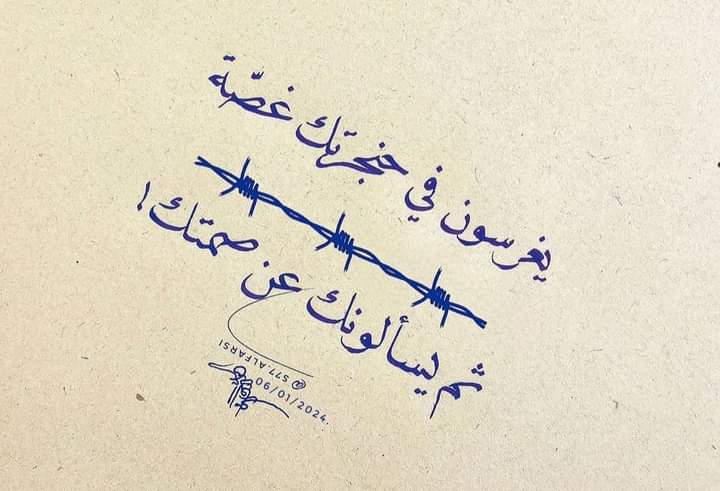 يغرسون في حنجرتك غصّة
ثم يسألونك عن صمتك!
@S77.ALFARSI
06/01/2024.